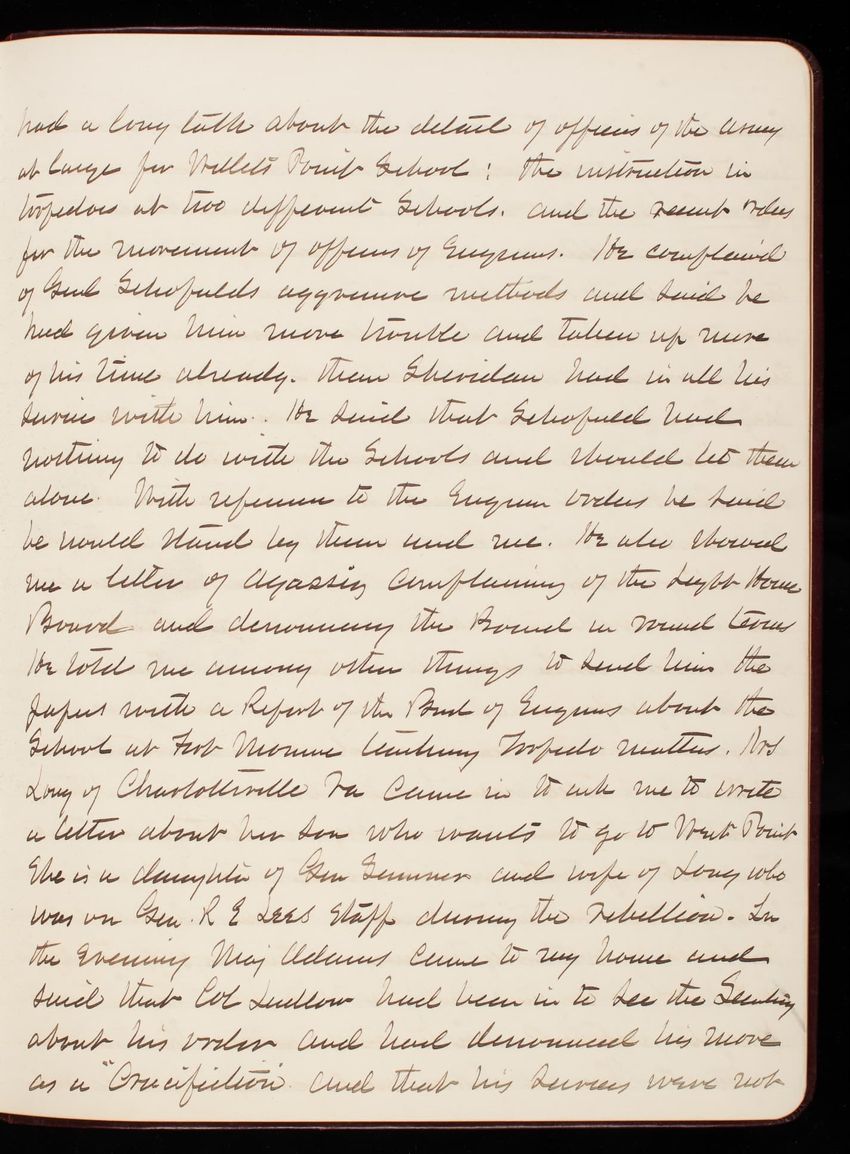 had a long talk about the detail of officers of the army
at large for Willets Point School; the instruction in
torpedoes at two different Schools. and the recent orders
for the movement of officers of Engineers. He complained
of Genl Schofields aggressive methods and said he
had given him more trouble and taken up more
of his time already. than Sheridan had in all his
service with him. He said that Schofield had
nothing to do with the Schools and should let them
alone. With reference to the Engineer orders he said
he would stand by them and me. He also showed
me a letter of Agassiz complaining of the Light House
Board and denouncing the Board in round terms
He told me among other things to send him the
papers with a Report of the Board of Engineers about the
School at Fort Monroe teaching Torpedo matters. Mrs
Long of Charlottesville Va came in to ask me to write
a letter about her son who wants to go to West Point
She is a daughter of Gen Sumner and wife of Long who
was on Gen. R E Lees Staff during the rebellion. In
the evening Maj Adams came to my house and
said that Col Ludlow had been in to see the Secretary
about his order and had denounced his move
as a "Crucifiction" and that his services were not